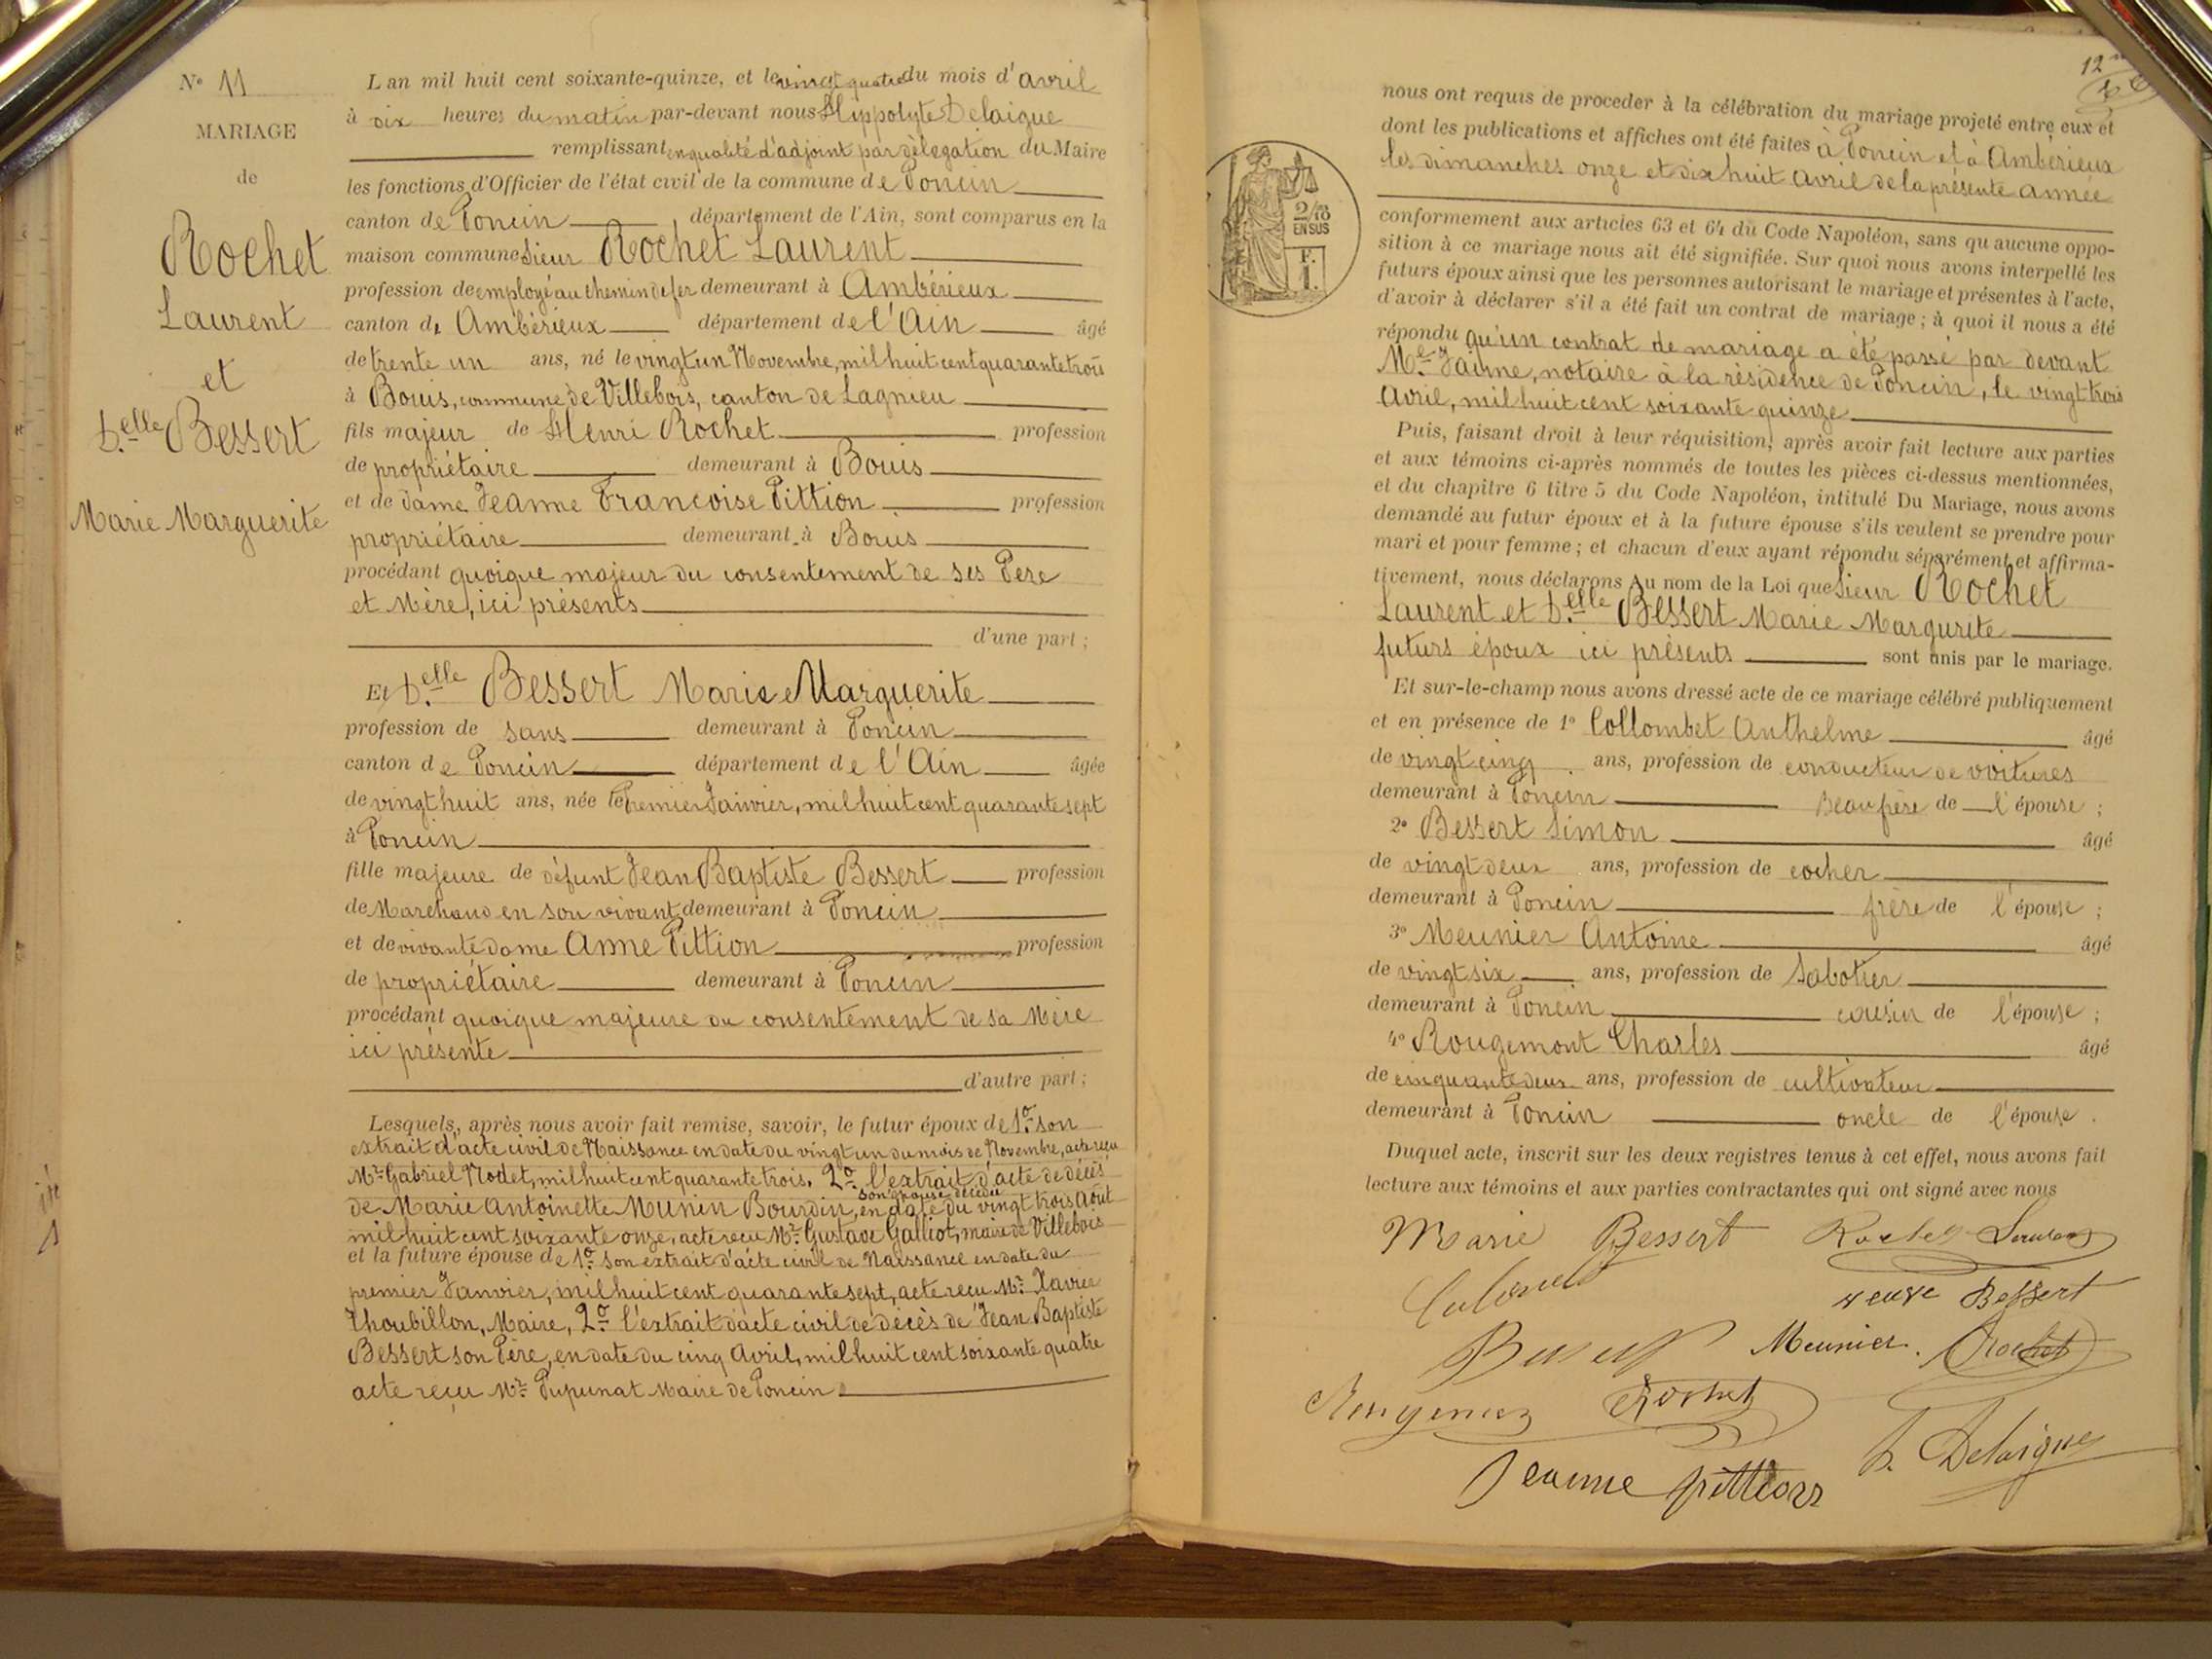 Nº 11
MARIAGE
de
Rochet
Laurent
et
D.elle Bessert
Marie Marguerite
L an mil huit cent soixante-quinze, et le vingt quatre du mois d'avril
à dix heures du matin par-devant nous Hippolyte Delaigue
remplissant en qualité d'adjoint par délégation du Maire
les fonctions d'Officier de l'état civil de la commune de Poncin
canton de Poncin département de l'Ain, sont comparus en la
maison commune Sieur Rochet Laurent
profession de employé au chemin de fer demeurant à Ambérieux
canton d, Ambérieux département de l'Ain âgé
de trente un ans, né le vingt un Novembre, mil huit cent quarante trois
à Bouis, commune de Villebois, canton de Lagnieu
fils majeur de Henri Rochet profession
de propriétaire demeurant à Bouis
et de Dame Jeanne Francoise Pittion profession
propriétaire demeurant à Bouis
procédant quoique majeur du consentement de ses Père
et Mère, ici présents
d'une part ;
Et D.elle Bessert Marie Marguerite
profession de sans demeurant à Poncin
canton de Poncin département de l'Ain âgée
de vingt huit ans, née le Premier Janvier, mil huit cent quarante sept
à Poncin
fille majeure de défunt Jean Baptiste Bessert profession
de Marchand en son vivant demeurant à Poncin
et de vivante dame Anne Pittion profession
de propriétaire demeurant à Poncin
procédant quoique majeure du consentement de sa Mère
ici présente
d'autre part ;
Lesquels, après nous avoir fait remise, savoir, le futur époux de 1º son
extrait d'acte civil de Naissance en date du vingt un du mois de Novembre, acte reçu
Mr Gabriel Nodet, mil huit cent quarante trois. 2º l'extrait d'acte de décès
de Marie Antoinette Munin Bourdin, son épouse décédée en date du vingt trois Août
mil huit cent soixante onze, acte reçu Mr Gustave Galliot, maire de Villebois
et la future épouse de 1º son extrait d'acte civil de Naissance en date du
premier Janvier, mil huit cent quarante sept, acte reçu Mr Xavier
Thoubillon, Maire, 2º l'extrait d'acte civil de décès de Jean Baptiste
Bessert son Père, en date du cinq Avril, mil huit cent soixante quatre
acte reçu Mr Pupunat Maire de Poncin
12
nous ont requis de proceder à la célébration du mariage projeté entre eux et
dont les publications et affiches ont été faites à Poncin et à Ambérieux
les dimanches onze et dix huit avril de la présente année
2/10
EN SUS
F.
1.
conformement aux articles 63 et 64 du Code Napoléon, sans qu aucune oppo-
sition à ce mariage nous ait été signifiée. Sur quoi nous avons interpellé les
futurs époux ainsi que les personnes autorisant le mariage et présentes à l'acte,
d'avoir à déclarer s'il a été fait un contrat de mariage ; à quoi il nous a été
répondu qu'un contrat de mariage a été passé par devant
Me Jaime, notaire à la résidence de Poncin, le vingt trois
Avril, mil huit cent soixante quinze
Puis, faisant droit à leur réquisition, après avoir fait lecture aux parties
et aux témoins ci-après nommés de toutes les pièces ci-dessus mentionnées,
et du chapitre 6 titre 5 du Code Napoléon, intitulé Du Mariage, nous avons
demandé au futur époux et à la future épouse s'ils veulent se prendre pour
mari et pour femme ; et chacun d'eux ayant répondu séparément et affirma-
tivement, nous déclarons Au nom de la Loi que Sieur Rochet
Laurent et D.elle Bessert Marie Margurite
futurs époux ici présents sont unis par le mariage.
Et sur-le-champ nous avons dressé acte de ce mariage célébré publiquement
et en présence de 1º Collombet Anthelme âgé
de vingt cinq ans, profession de conducteur de voitures
demeurant à Poncin Beau frère de l'épouse ;
2º Bessert Simon âgé
de vingt deux ans, profession de cocher
demeurant à Poncin frère de l'épouse ;
3º Meunier Antoine âgé
de vingt six ans, profession de Sabotier
demeurant à Poncin cousin de l'épouse ;
4º Rougemont Charles âgé
de cinquante deux ans, profession de cultivateur
demeurant à Poncin oncle de l'épouse.
Duquel acte, inscrit sur les deux registres tenus à cet effet, nous avons fait
lecture aux témoins et aux parties contractantes qui ont signé avec nous
Marie Bessert Rochet Laurent
veuve Bessert
Bessert Meunier. Rochet
Rougemon Rochet
H. Delaigue
Jeanne pittion